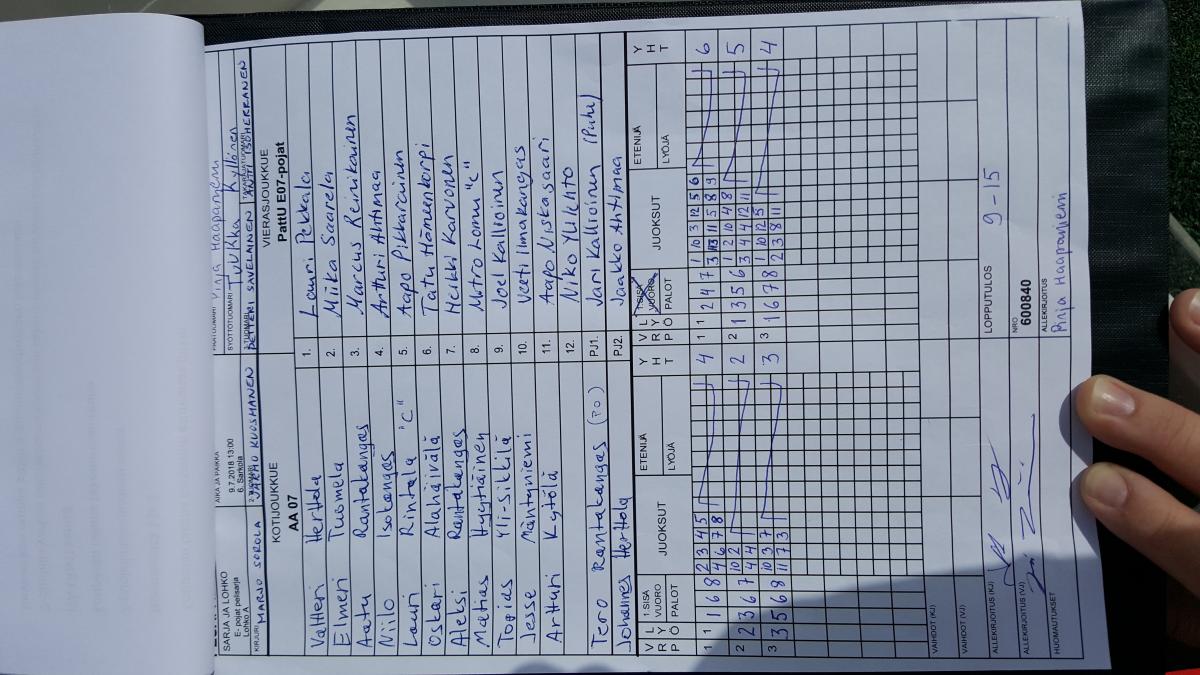 SARJA JA LOHKO
E-pojat pelisarja
Lohko A
AIKA JA PAIKKA
9.7.2018 13:00
6. Sarkola
Pinja Haapaniemi
SYÖTTÖTUOMARI Tuukka Kyllönen
KIRJURI MARJO SOROLA JARMO KUOSMANEN PETTERI SAVELAINEN ANTTI ISOHERRANEN
KOTIJOUKKUE
AA 07
VIERASJOUKKUE
PattU E07-pojat
Valtteri Herttola 1. Lauri Pekkala
Elmeri Tuomela 2. Miika Saarela
Aatu Rantakangas 3. Marcus Reinikainen
Niilo Isokangas 4. Artturi Ahtimaa
Lauri Rintala "C" 5. Aapo Pikkarainen
Oskari Alahäivälä 6. Tatu Hämeenkorpi
Aleksi Rantakangas 7. Heikki Karvonen
Matias Hyytiäinen 8. Motro Lomu "C"
Topias Yli-Sikkilä 9. Joel Kallioinen
Jesse Mäntyniemi 10. Veeti Ilmakangas
Artturi Kytölä 11. Aapo Niskasaari
12. Niko Ylilehto
Tero Rantakangas (PO) PJ1. Jari Kallioinen (Puhu)
Johannes Herttola PJ2. Jaakko Ahtimaa
V R L Y P Ö 1. SISÄ VUORO PALOT JUOKSUT ETENIJÄ LYÖJÄ Y H T
V R L Y P Ö 1. SISÄ VUORO PALOT JUOKSUT ETENIJÄ LYÖJÄ Y H T
1 1 1 6 8 2 3 4 5 4 1 1 2 4 7 1 10 3 12 5 6 6
4 6 7 8 3 13 11 5 8 9
2 2 3 6 7 10 2 2 2 1 3 5 6 1 2 10 4 8 5
4 4 3 4 4 12 11
3 3 5 6 8 10 3 7 3 3 1 6 7 8 1 10 12 5 4
11 7 3 2 3 8 11
VAIHDOT (KJ)
VAIHDOT (VJ)
ALLEKIRJOITUS (KJ)
LOPPUTULOS 9-15
ALLEKIRJOITUS (VJ)
NRO
600840
HUOMAUTUKSET
ALLEKIRJOITUS
Pinja Haapaniemi